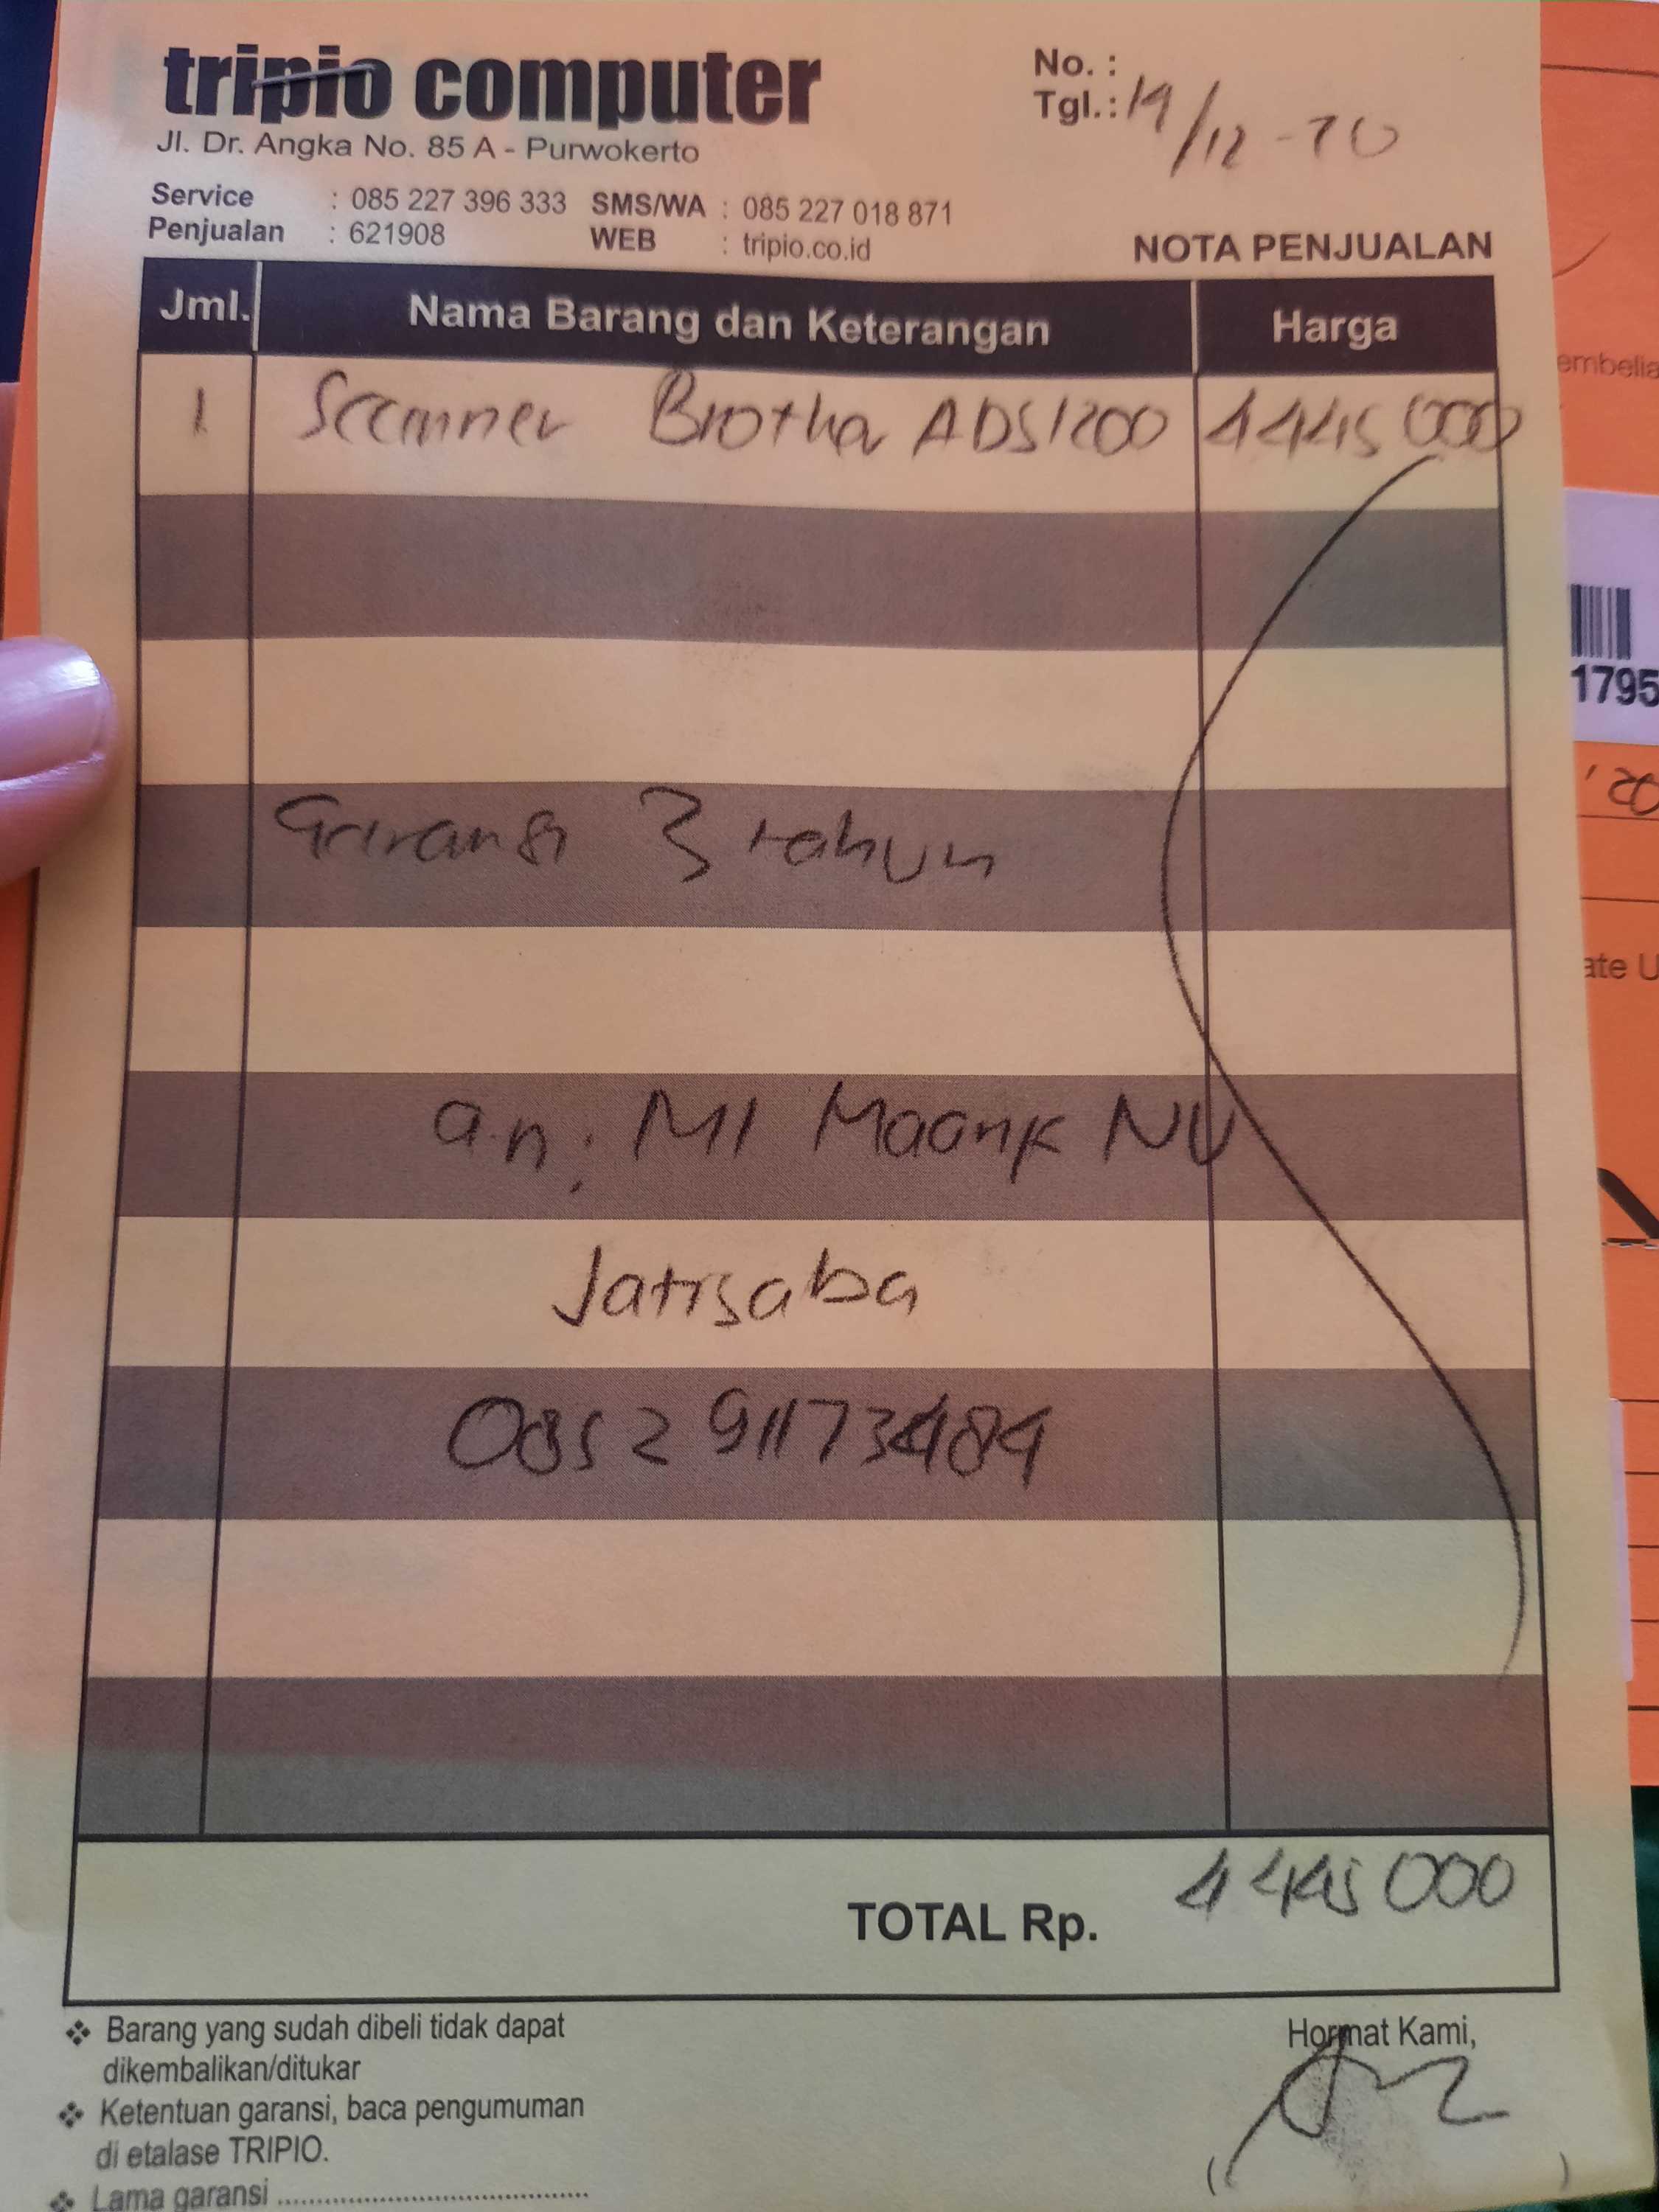 tripio computer
Jl. Dr. Angka No. 85 A - Purwokerto
No. :
Tgl.: 19/12-20
Service : 085 227 396 333 SMS/WA : 085 227 018 871
Penjualan : 621908 WEB : tripio.co.id
NOTA PENJUALAN
Jml. Nama Barang dan Keterangan Harga
1 Scanner Brother ADS1200 4445 000
Garansi 3 tahun
a.n. MI Maarif NU
Jatisaba
0852 91173484
TOTAL Rp. 4445 000
❖ Barang yang sudah dibeli tidak dapat
dikembalikan/ditukar
❖ Ketentuan garansi, baca pengumuman
di etalase TRIPIO.
❖ Lama garansi ........................................
Hormat Kami,
( )
embelia
1795
'20
ate U